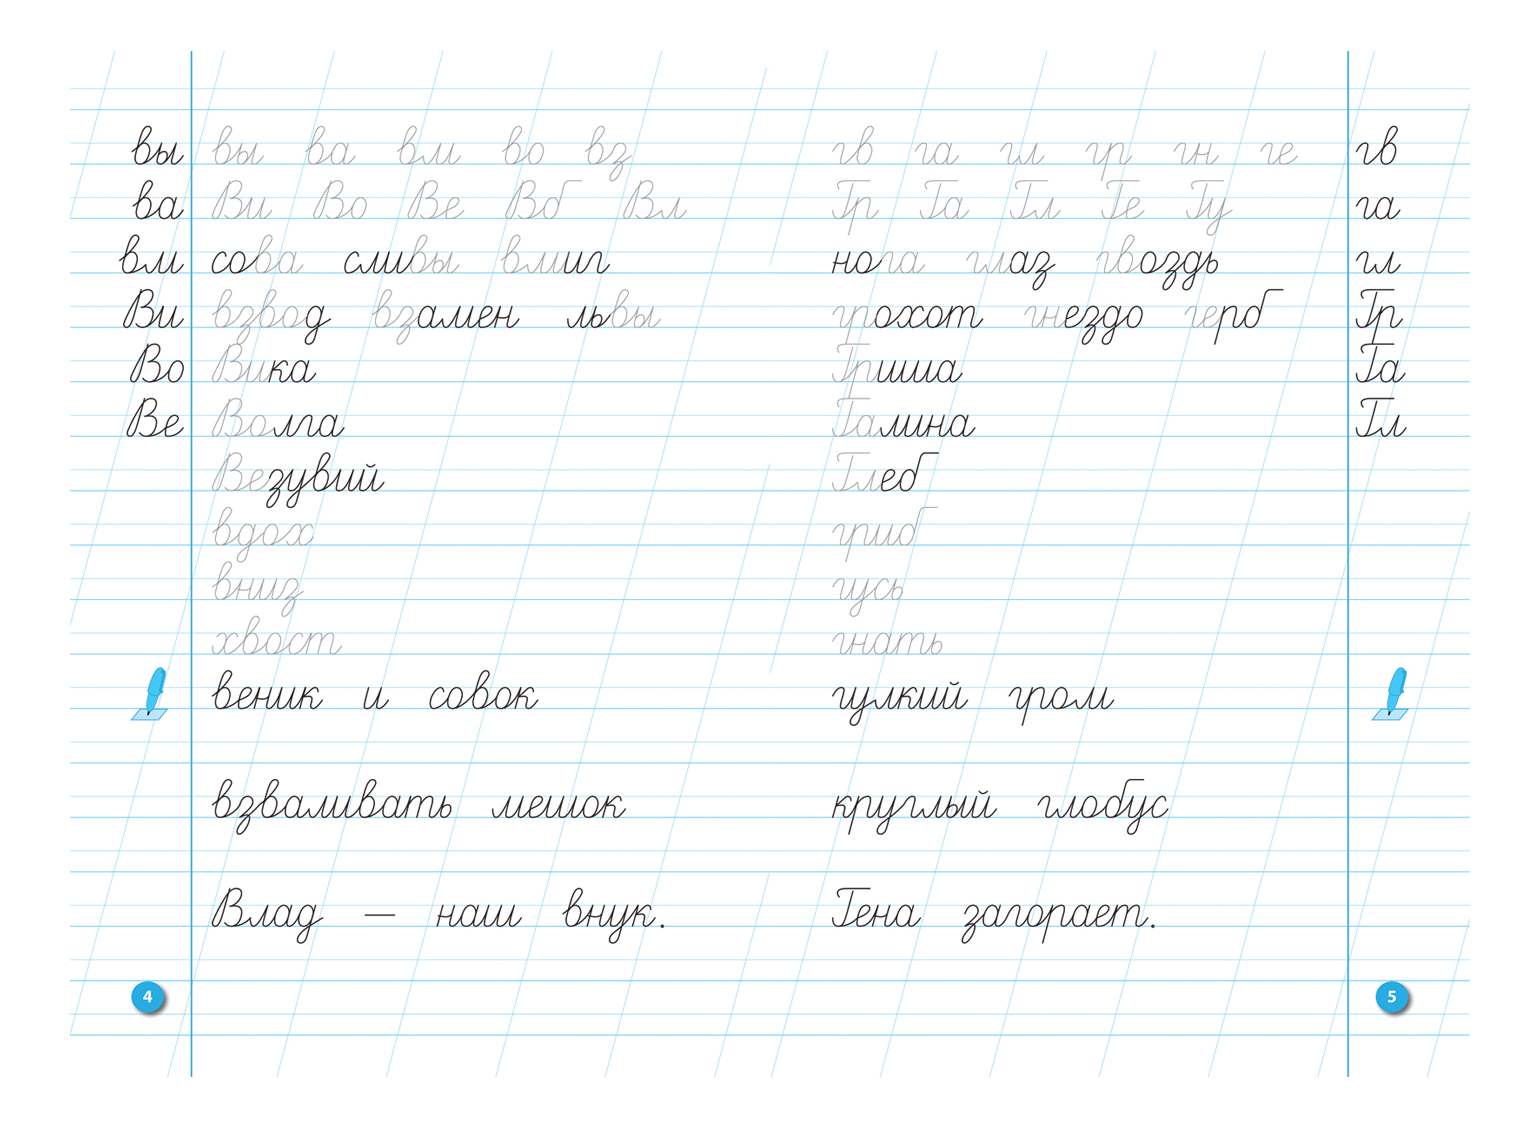 вы вы ва вл во вз
ва Ви Во Ве Вб Вл
вл сова сливы влип
Ви взвод взамен львы
Во Вика
Ве Волга
Везувий
вдох
вниз
хвост
веник и совок
взваливать мешок
Влад — наш внук.
4
гв га гл гр гн ге гв
Гр Га Гл Ге Гу га
нога глаз гвоздь гл
грохот гнездо герб Гр
Гриша Га
Галина Гл
Глеб
гриб
гусь
гнать
гулкий гром
круглый глобус
Гена загорает.
5